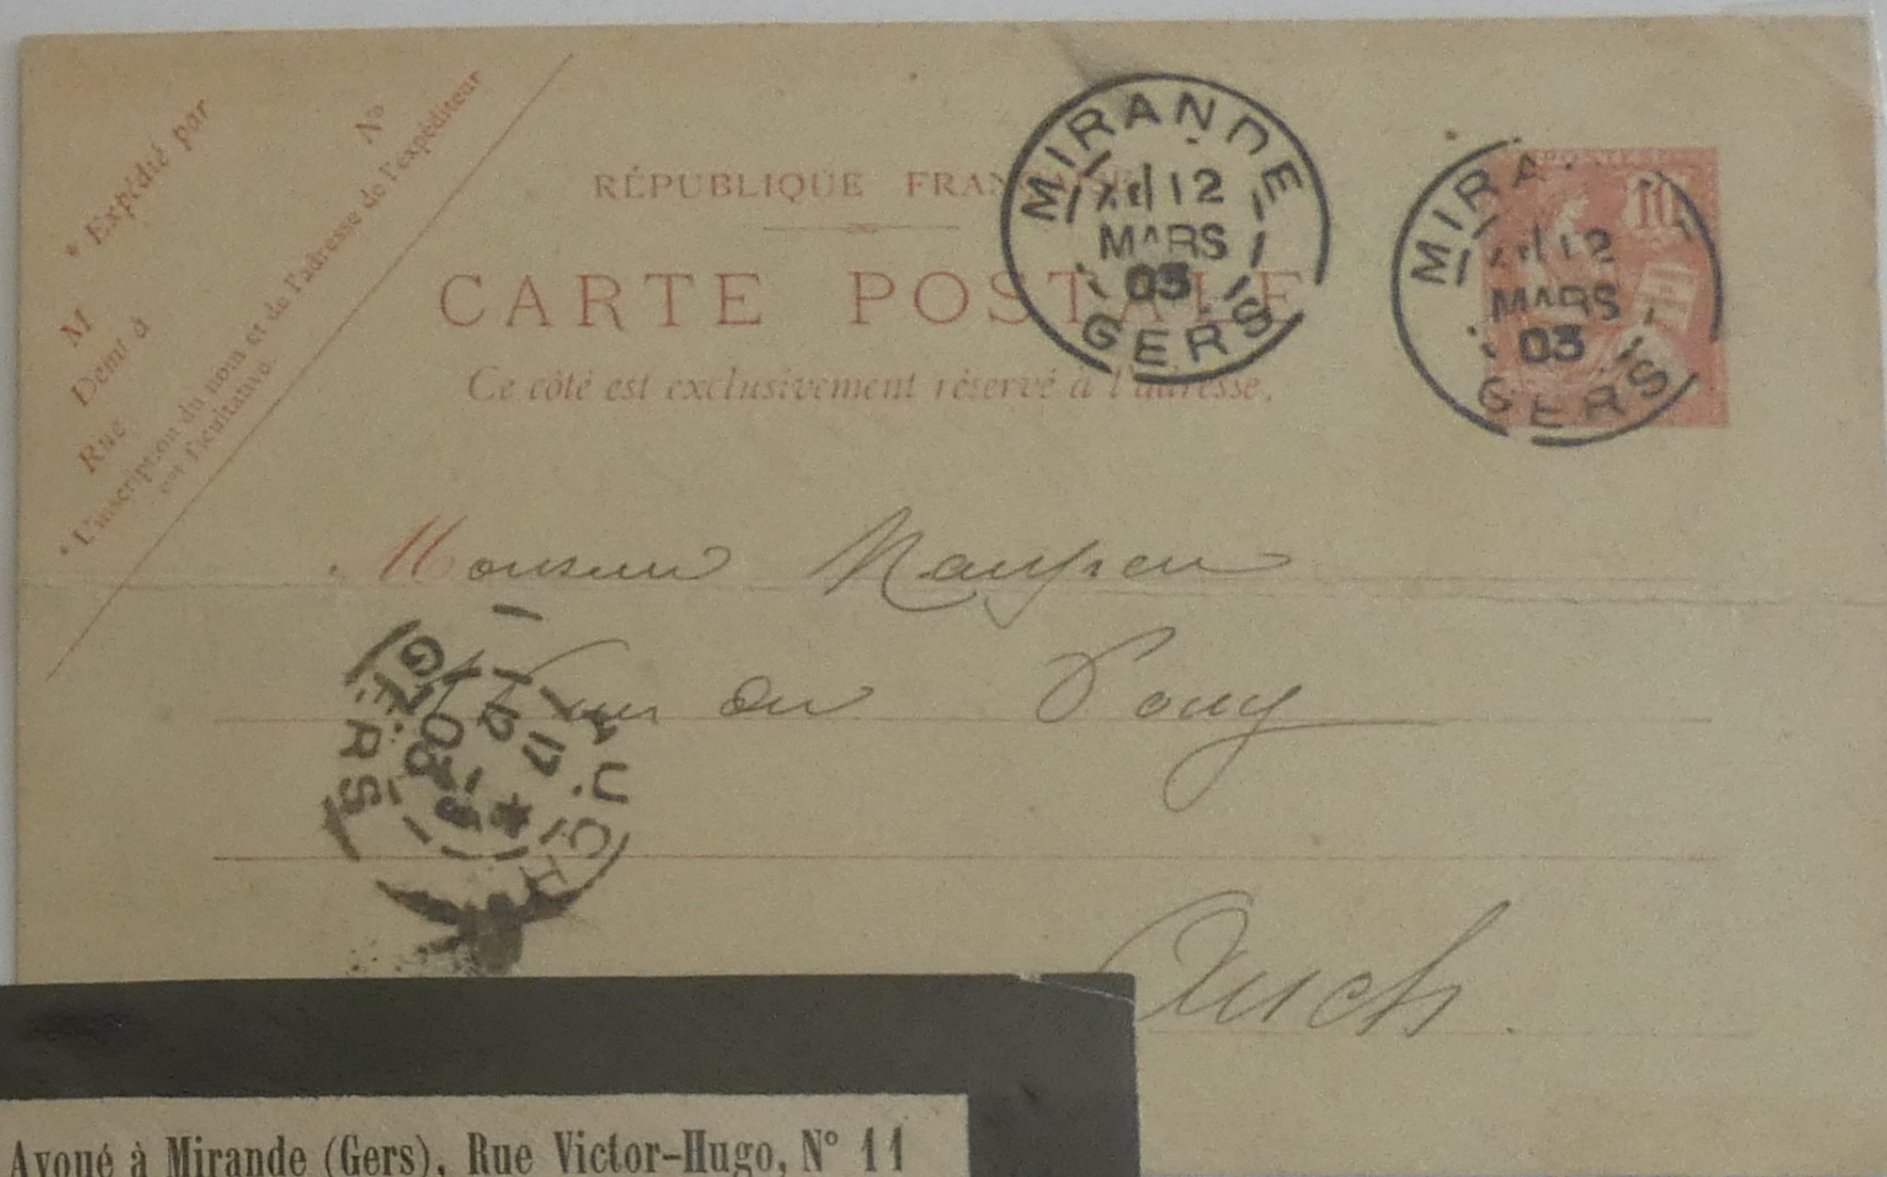 * Expédié par
M
Demt à
Rue
N°
* L'inscription du nom et de l'adresse de l'expéditeur
est facultative.
RÉPUBLIQUE FRAN
CARTE POSTALE
Ce côté est exclusivement réservé à l'adresse.
MIRANDE
12
MARS
03
GERS
POSTES
10
MIRA E
12
MARS
03
GERS
Monsieur Maupeu
Rue du Pouy
Auch
AUCH
17
12
03
GERS
Avoué à Mirande (Gers), Rue Victor-Hugo, N° 11